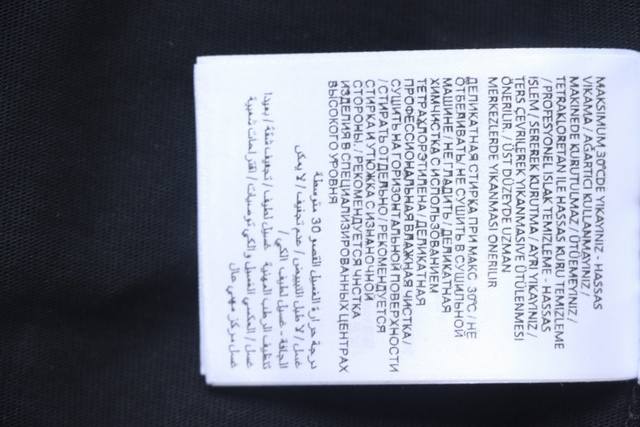 MAKSIMUM 30°CDE YIKAYINIZ - HASSAS
YIKAMA / AĞARTICI KULLANMAYINIZ /
MAKİNEDE KURUTULMAZ / ÜTÜLEMEYİNİZ /
TETRAKLORETAN İLE HASSAS KURU TEMİZLEME
/ PROFESYONEL ISLAK TEMİZLEME - HASSAS
İŞLEM / SEREREK KURUTMA / AYRI YIKAYINIZ /
TERS ÇEVRİLEREK YIKANMASI VE ÜTÜLENMESİ
ÖNERİLİR. / ÜST DÜZEYDE UZMAN
MERKEZLERDE YIKANMASI ÖNERİLİR
ДЕЛИКАТНАЯ СТИРКА ПРИ МАКС 30°С / НЕ
ОТБЕЛИВАТЬ / НЕ СУШИТЬ В СУШИЛЬНОЙ
МАШИНЕ / НЕ ГЛАДИТЬ / ДЕЛИКАТНАЯ
ХИМЧИСТКА С ИСПОЛЬЗОВАНИЕМ
ТЕТРАХЛОРЭТИЛЕНА / ДЕЛИКАТНАЯ
ПРОФЕССИОНАЛЬНАЯ ВЛАЖНАЯ ЧИСТКА /
СУШИТЬ НА ГОРИЗОНТАЛЬНОЙ ПОВЕРХНОСТИ
/ СТИРАТЬ ОТДЕЛЬНО / РЕКОМЕНДУЕТСЯ
СТИРКА И УТЮЖКА С ИЗНАНОЧНОЙ
СТОРОНЫ. / РЕКОМЕНДУЕТСЯ ЧИСТКА
ИЗДЕЛИЯ В СПЕЦИАЛИЗИРОВАННЫХ ЦЕНТРАХ
ВЫСОКОГО УРОВНЯ
درجة حرارة الغسيل القصو 30 متوسطة
غسل / لا طبل التبييض / عدم تجفيف / لا يمكن
الكي / الجافة - غسيل لطيف
تنظيف الرطب المهنية - غسيل لطيف / تجفيف شقة / بعيدا
غسل / العكسي الغسيل والكي توصيات / اقتراحات شعبية
غسل مركز مهني عال